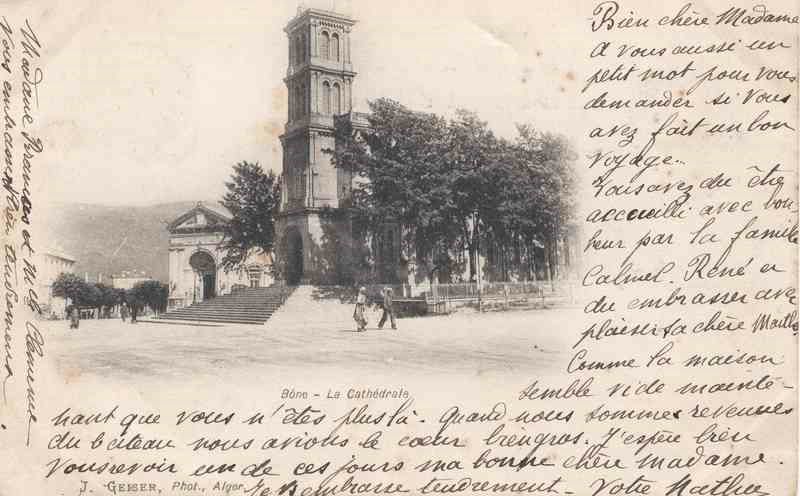 Bien chère Madame
A vous aussi un
petit mot pour vous
demander si vous
avez fait un bon
voyage..
Vous avez du être
accueilli avec bon
heur par la famille
Calmel. René a
du embrasser avec
plaisir sa chère
Comme la maison
semble vide mainte-
nant que vous n'êtes plus là. Quand nous sommes revenues
du bateau nous avions le cœur bien gros. J'espère bien
vous revoir un de ces jours ma bonne chère madame.
Je vous embrasse tendrement - Votre
Bône - La Cathédrale
J. GEISER, Phot., Alger
Madame et Mlle
vous embrassent bien tendrement